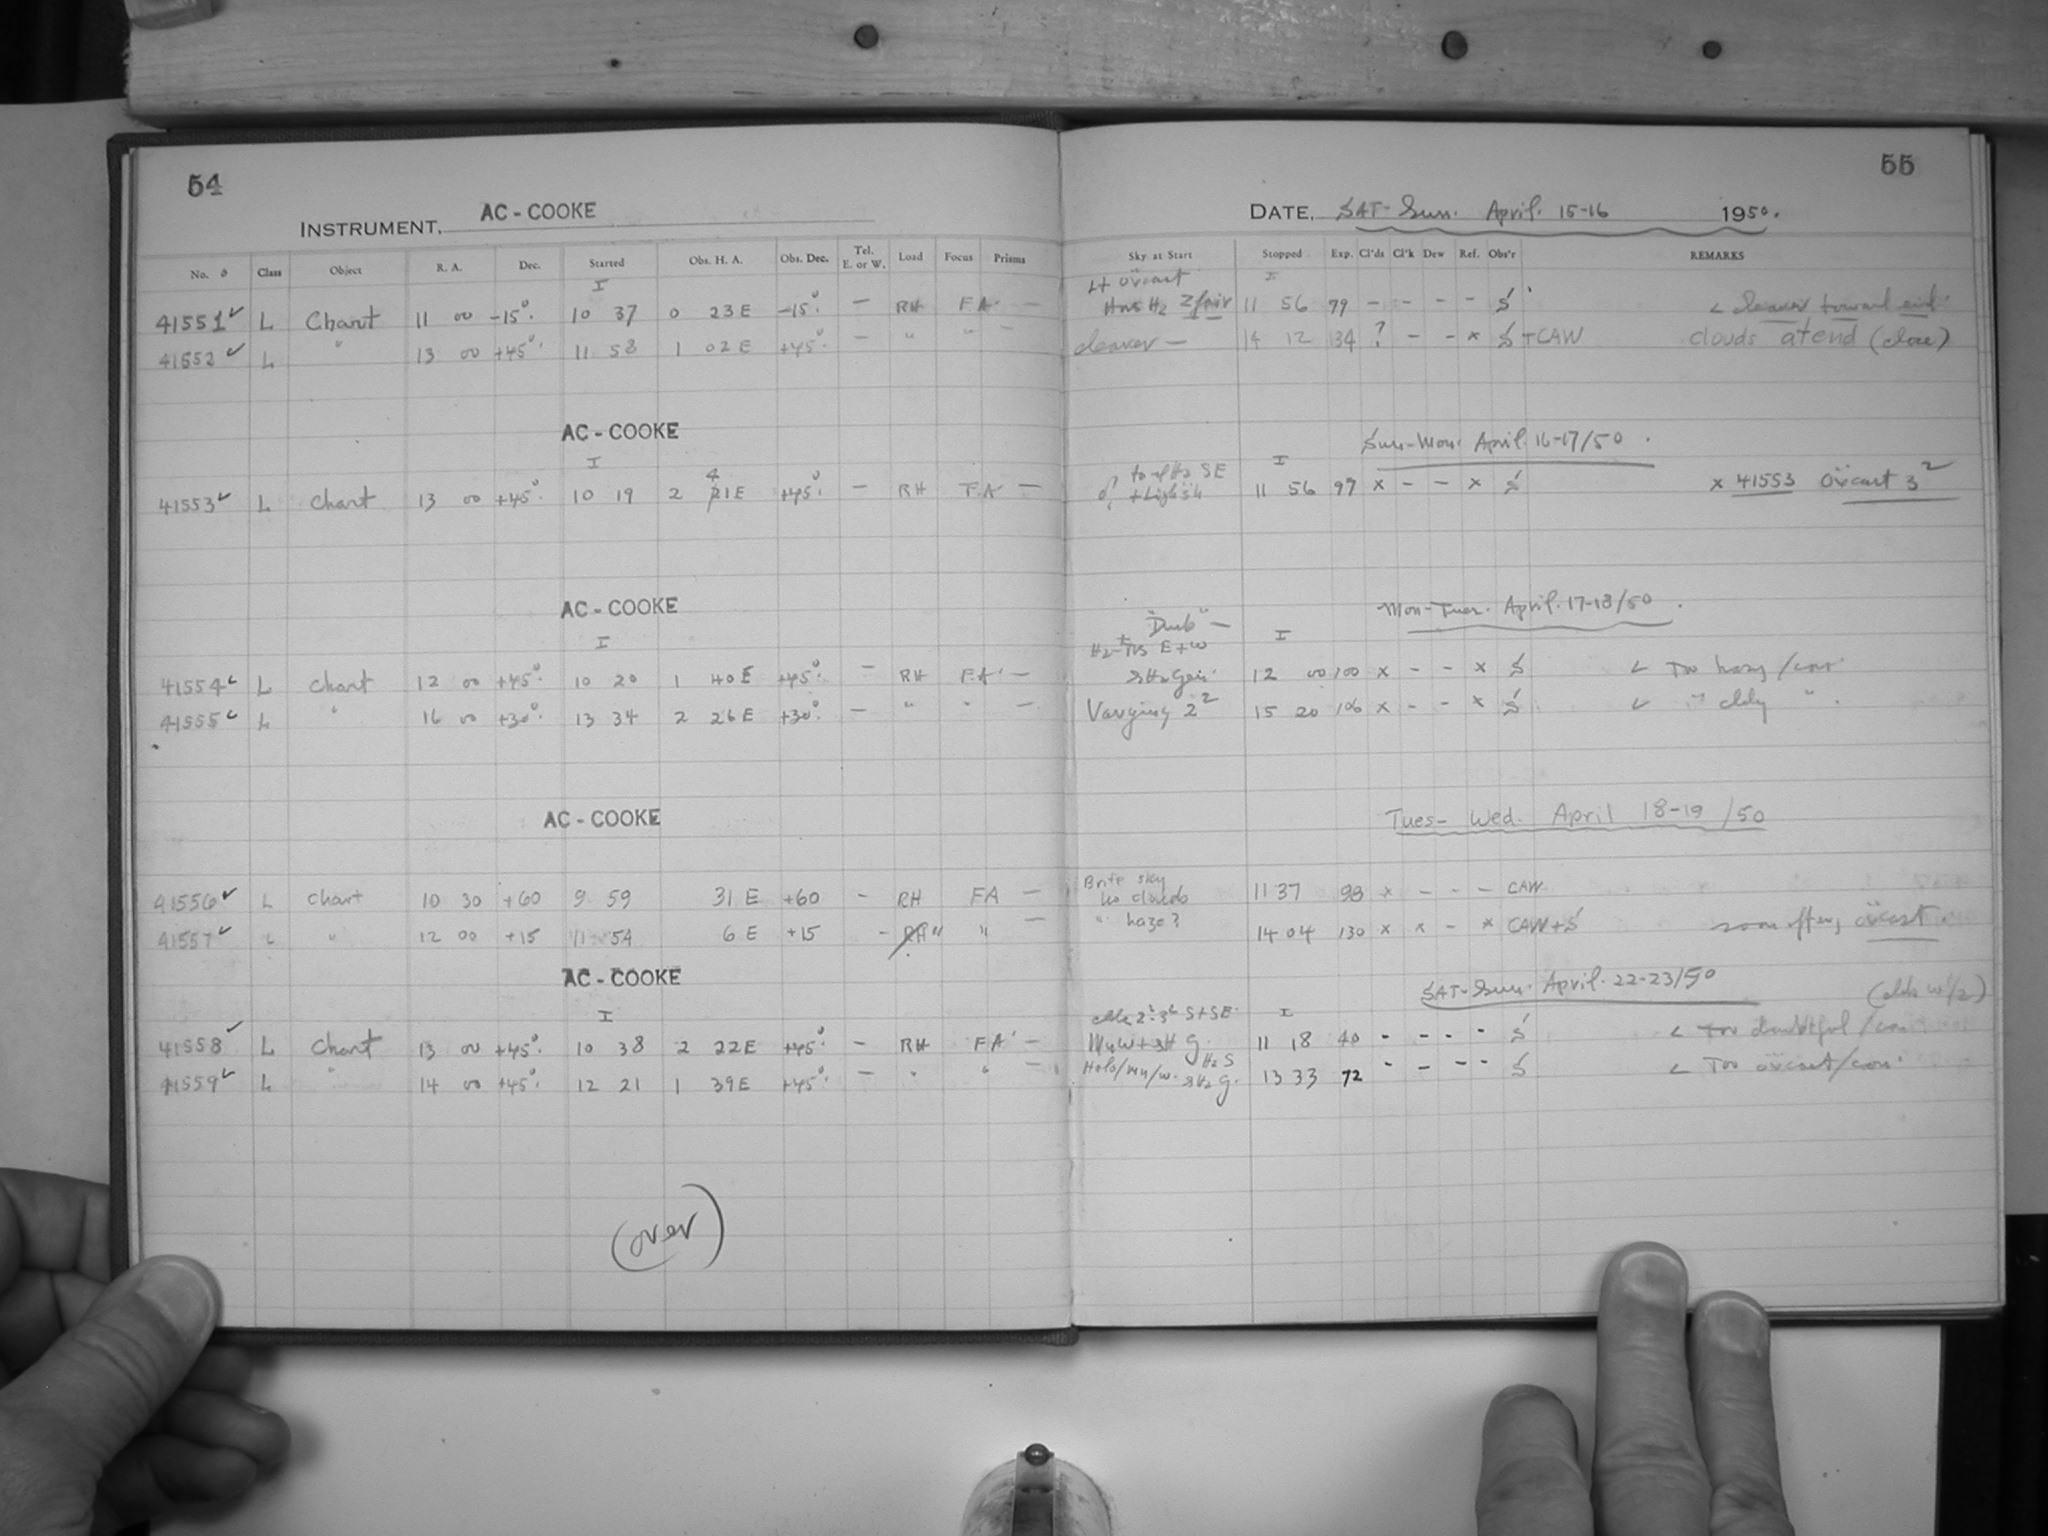 54
INSTRUMENT, AC - COOKE
No. Class Object R. A. Dec. Started Obs. H. A. Obs. Dec. Tel. E. or W. Load Focus Prisms
I
41551 ✓ L Chart 11 00 -15° 10 37 0 23 E -15° - RH FA -
41552 ✓ L " 13 00 +45° 11 58 1 02 E +45° - " " -
AC - COOKE
I
41553 ✓ L Chart 13 00 +45° 10 19 2 41 E +45° - RH FA -
AC - COOKE
I
41554 ✓ L Chart 12 00 +45° 10 20 1 40 E +45° - RH FA -
41555 ✓ L " 16 00 +30° 13 34 2 26 E +30° - " " -
AC - COOKE
41556 ✓ L Chart 10 30 +60 9 59 31 E +60 - RH FA -
41557 ✓ L " 12 00 +15 11 54 6 E +15 - " " -
AC - COOKE
I
41558 ✓ L Chart 13 00 +45° 10 38 2 22 E +45° - RH FA -
41559 ✓ L " 14 00 +45° 12 21 1 39 E +45° - " " -
(over)
55
DATE, SAT-Sun. April. 15-16 1950.
Sky at Start Stopped Exp. Cl'ds Cl'k Dew Ref. Obs'r REMARKS
I
fair 11 56 79 - - - - S < clearer toward end
clearer - 14 12 134 ? - - x S + CAW clouds at end (close)
Sun-Mon. April. 16-17/50.
I
11 56 97 x - - x S x 41553 övcast 3²
Mon-Tues. April. 17-18/50.
I
12 00 100 x - - x S < Too hazy/con.
Varying 2² 15 20 106 x - - x S < " cldy "
Tues- Wed. April 18-19 /50
Brite sky
no clouds 11 37 98 x - - - CAW
" haze? 14 04 130 x x - x CAW+S soon after, övcast
SAT-Sun. April. 22-23/50
I
11 18 40 - - - - S < Too doubtful/con.
13 33 72 - - - - S < Too övcast/con.